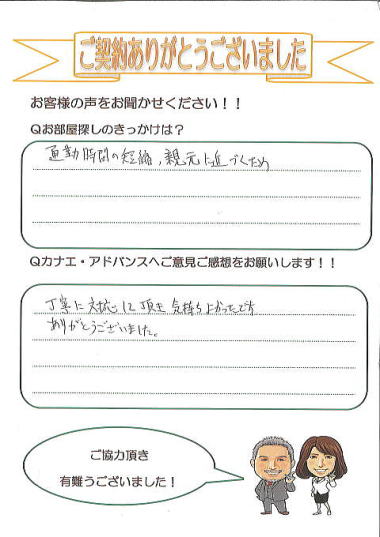 ご契約ありがとうございました
お客様の声をお聞かせください！！
Qお部屋探しのきっかけは？
通勤時間の短縮、親元に近づくため
Qカナエ・アドバンスへご意見ご感想をお願いします！！
丁寧に対応して頂き気持ちよかったです
ありがとうございました。
ご協力頂き
有難うございました！